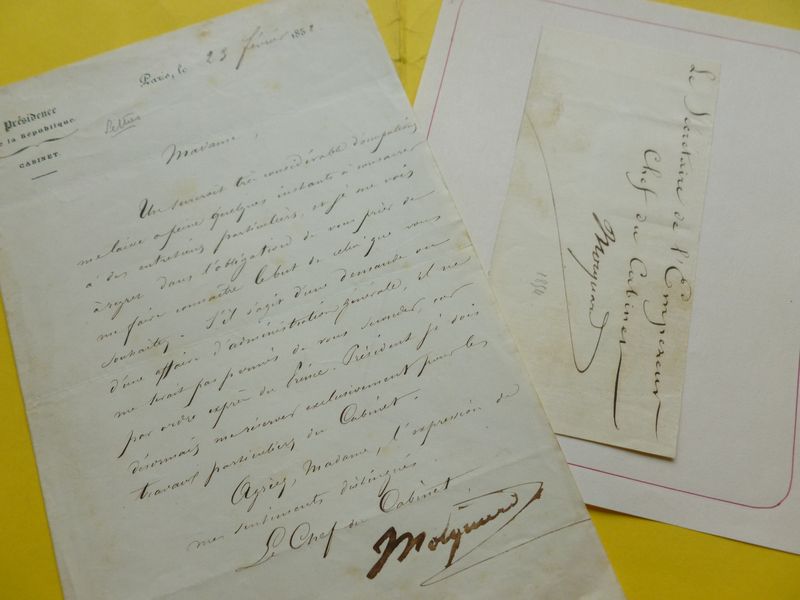 Présidence
de la République.
CABINET.
Paris, le 23 février 1852
Madame,
Un surcroit très considérable d'occupations
me laisse à peine quelques instants à consacrer
à des entretiens particuliers, et je me vois
à regret dans l'obligation de vous prier de
me faire connaître le but de celui que vous
souhaitez. S'il s'agit d'une demande ou
d'une affaire d'administration générale, il ne
me serait pas permis de vous seconder, car
par ordre exprès du Prince-Président je dois
désormais me réserver exclusivement pour les
travaux particuliers du Cabinet.
Agréez, Madame, l'expression de
mes sentiments distingués.
Le Chef du Cabinet
Mocquard
Le Secrétaire de l'Empereur
Chef du Cabinet
Mocquard